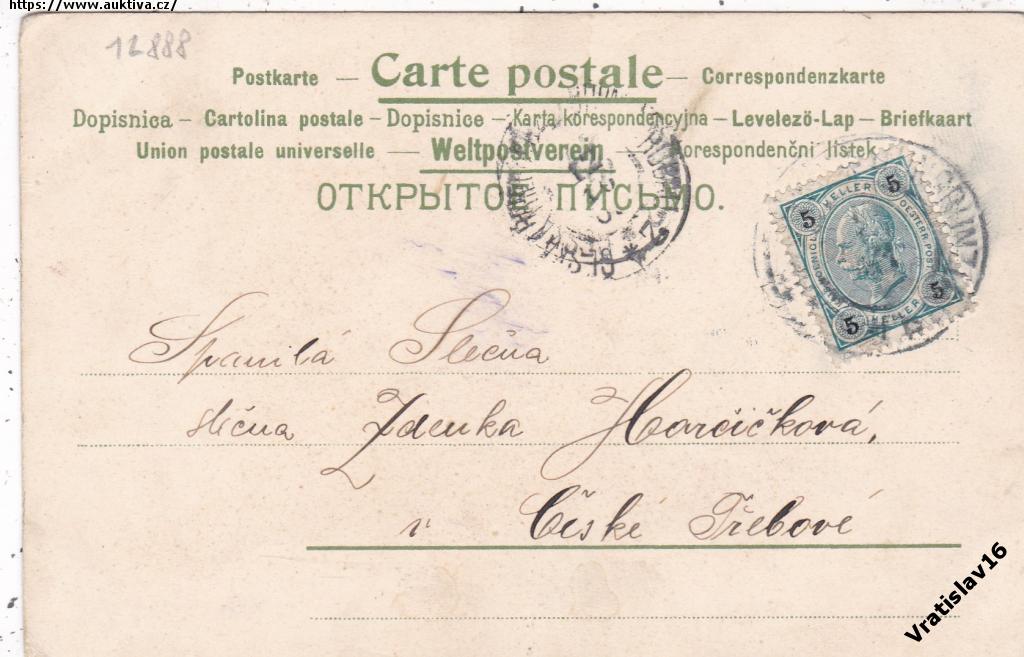 https://www.auktiva.cz/
12888
Postkarte — Carte postale — Correspondenzkarte
Dopisnica — Cartolina postale — Dopisnice — Karta korespondencyjna — Levelező-Lap — Briefkaart
Union postale universelle — Weltpostverein — Korespondenčni listek
ОТКРЫТОЕ ПИСЬМО.
5 HELLER 5
OESTERR. POST
5 HELLER 5
Spanilá Slečna
slečna Zdenka Harčičková,
v České Třebové
Vratislav16